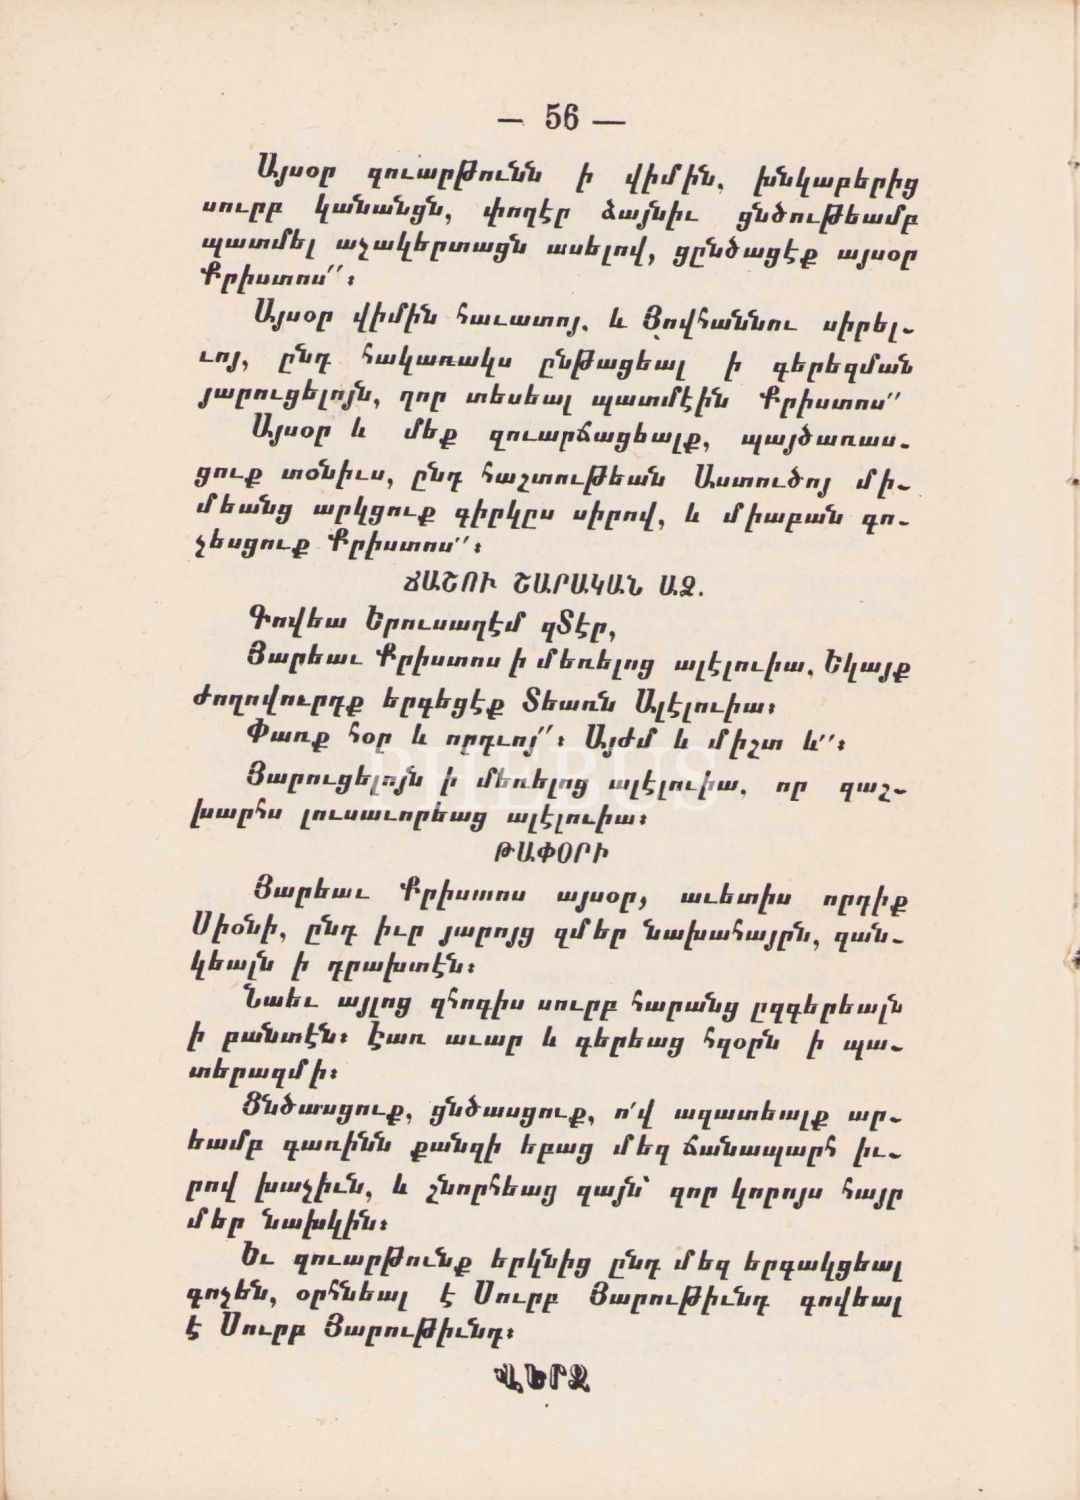 — 56 —
Այսօր զուարթունն ի վիմին, խնկաբերից
սուրբ կանանցն, փողէր ձայնիւ ցնծութեամբ
պատմել աշակերտացն ասելով, ցընծացէք այսօր
Քրիստոս՛՛։
Այսօր վիմին հաւատոյ. և Յովհաննու սիրել-
ւոյ, ընդ հակառակս ընթացեալ ի գերեզման
յարուցելոյն, ղոր տեսեալ պատմէին Քրիստոս՛՛
Այսօր և մեք զուարճացեալք, պայծառաս-
ցուք տօնիւս, ընդ հաշտութեան Աստուծոյ մի-
մեանց արկցուք գիրկըս սիրով, և միաբան գո-
չեսցուք Քրիստոս՛՛։
ՃԱՇՈՒ ՇԱՐԱԿԱՆ ԱՁ.
Գովեա Երուսաղէմ զՏէր,
Յարեաւ Քրիստոս ի մեռելոց ալէլուիա, Եկայք
ժողովուրդք երգեցէք Տեառն Ալէլուիա։
Փառք հօր և որդւոյ՛՛։ Այժմ և միշտ և՛՛։
Յարուցելոյն ի մեռելոց ալէլուիա, որ զաշ-
խարհս լուսաւորեաց ալէլուիա։
ԹԱՓՕՐԻ
Յարեաւ Քրիստոս այսօր, աւետիս որդիք
Սիօնի, ընդ իւր յարոյց զմեր նախահայրն, զան-
կեալն ի դրախտէն։
Նաեւ այլոց զհոգիս սուրբ հարանց ըզգերեալն
ի բանտէն։ Էառ աւար և գերեաց հզօրն ի պա-
տերազմի։
Ցնծասցուք, ցնծասցուք, ո՛վ ազատեալք ար-
եամբ գառինն քանզի եբաց մեզ ճանապարհ իւ-
րով խաչիւն, և շնորհեաց զայն՝ զոր կորոյս հայր
մեր նախկին։
Եւ զուարթունք երկնից ընդ մեզ երգակցեալ
գոչեն, օրհնեալ է Սուրբ Յարութիւնդ գովեալ
է Սուրբ Յարութիւնդ։
ՎԵՐՋ
PHEBUS